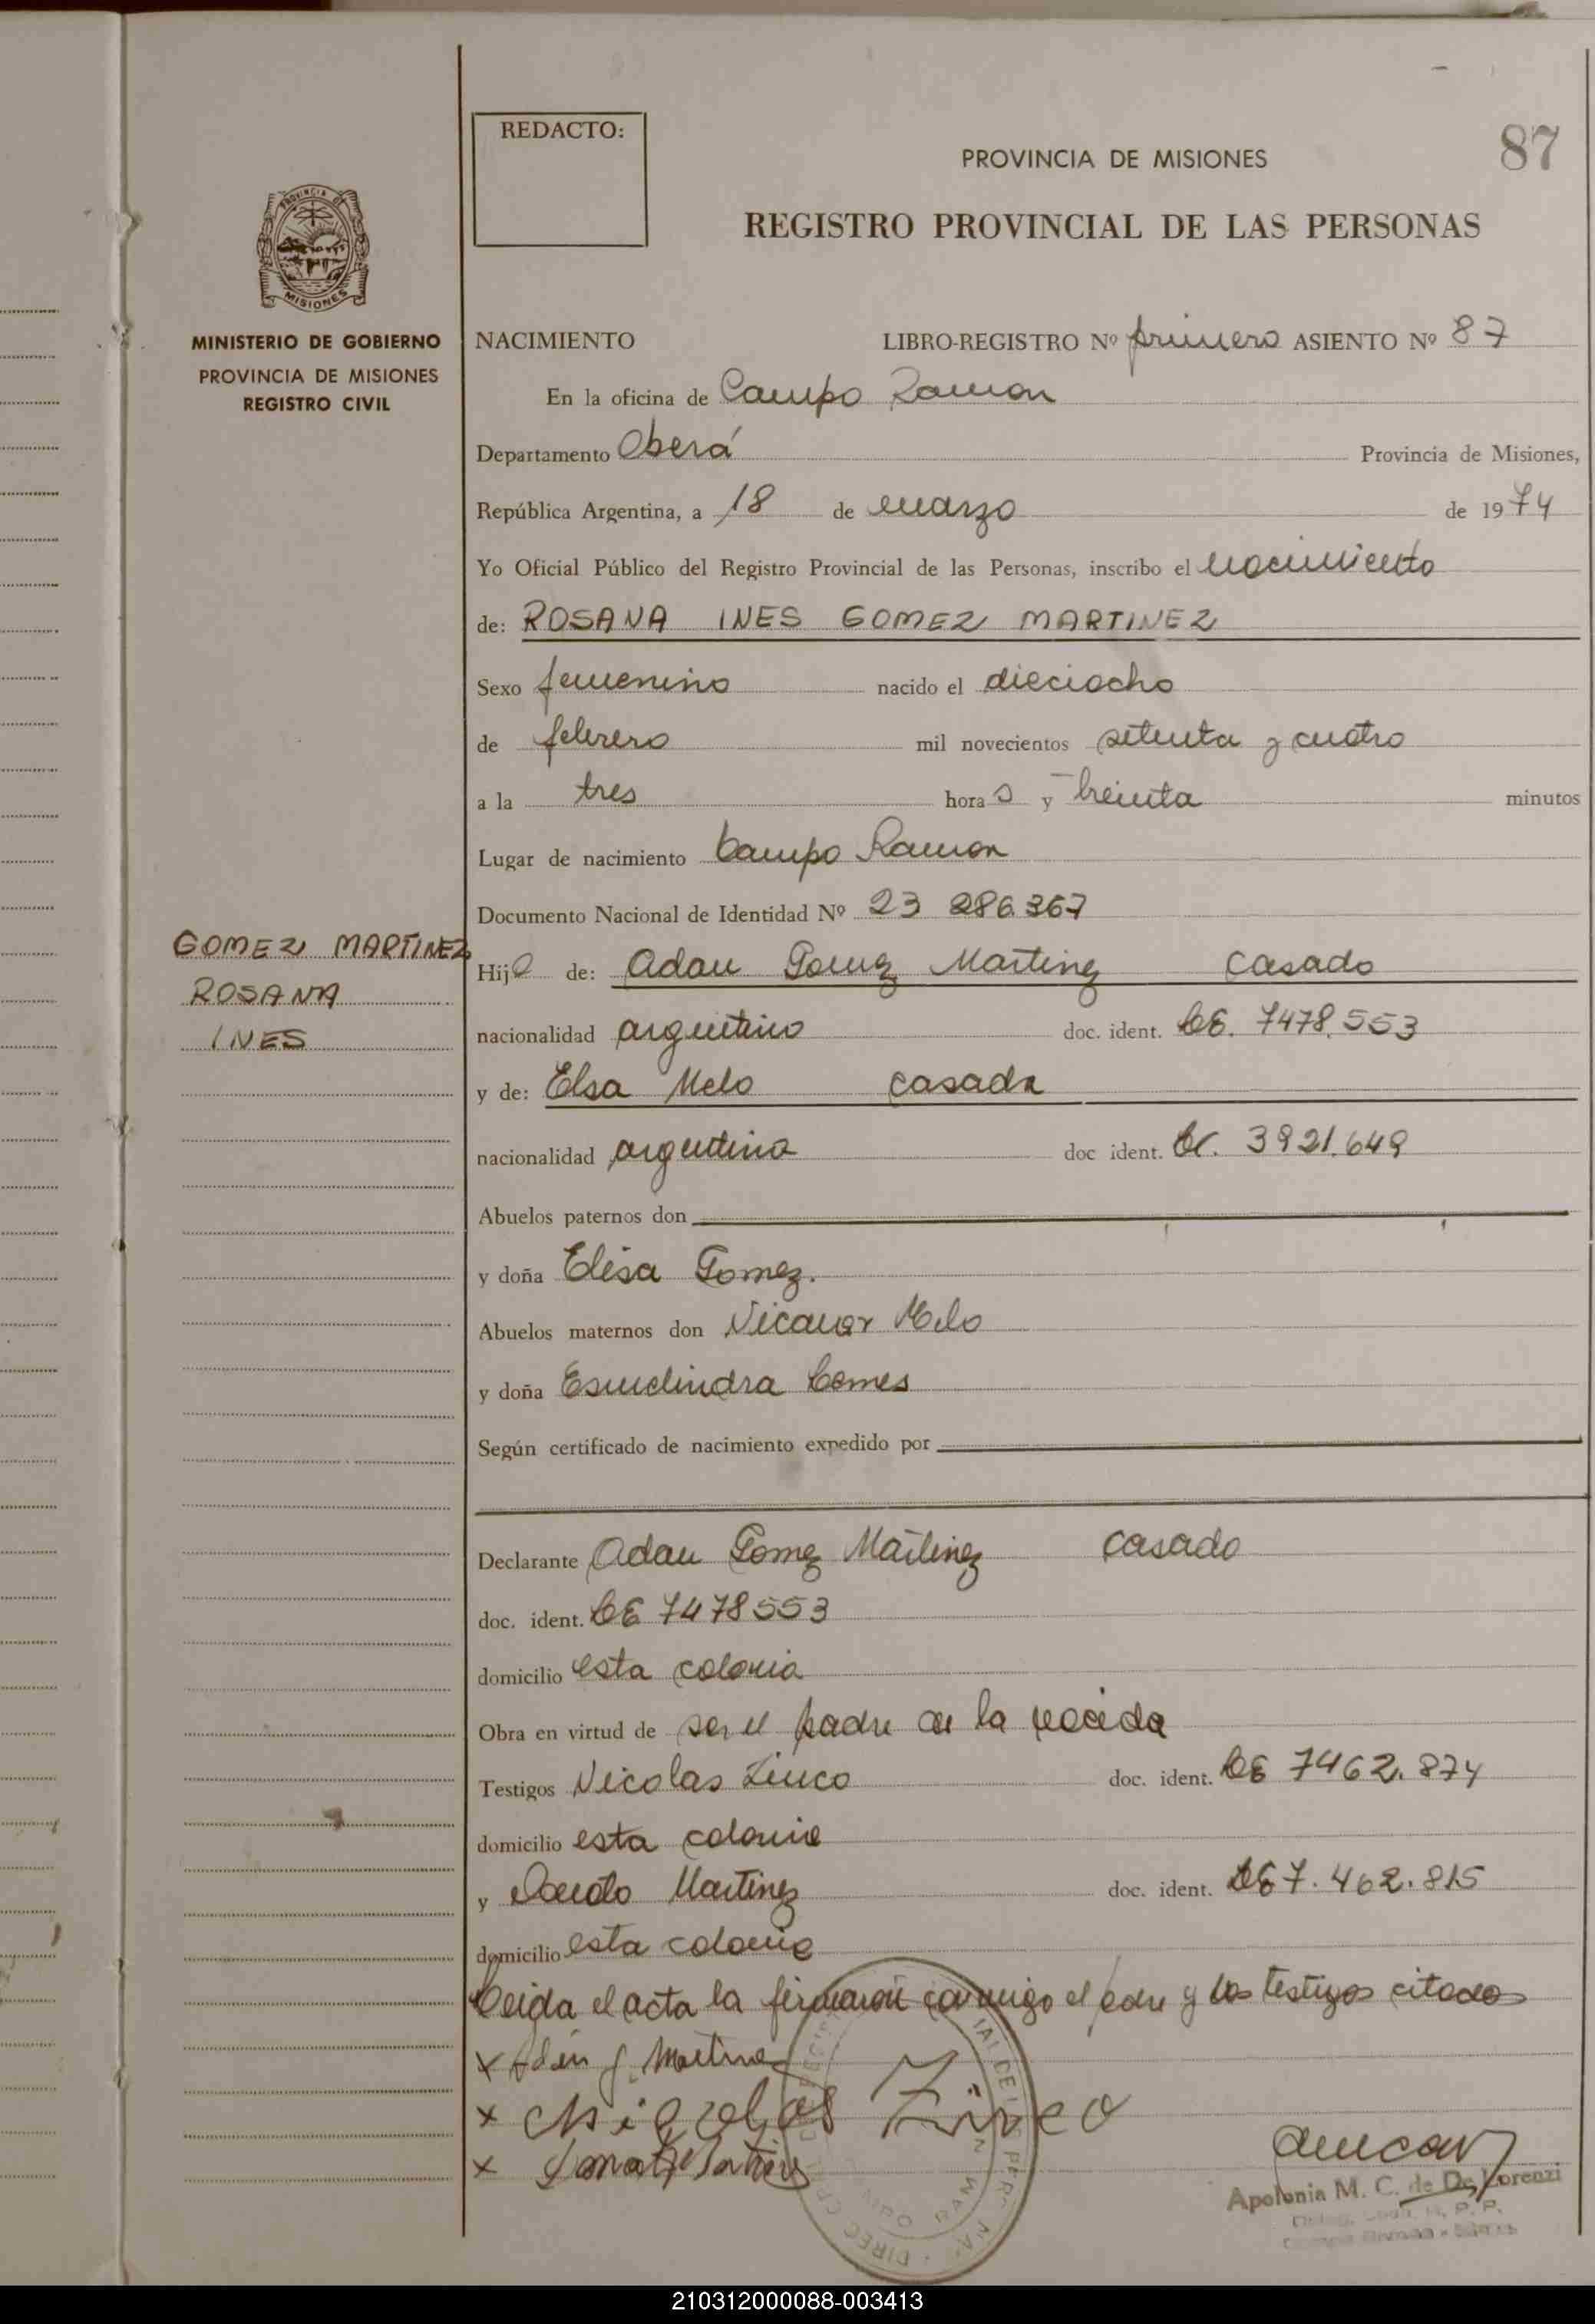 REDACTO:
PROVINCIA DE MISIONES
87
REGISTRO PROVINCIAL DE LAS PERSONAS
PROVINCIA DE
MISIONES
MINISTERIO DE GOBIERNO
PROVINCIA DE MISIONES
REGISTRO CIVIL
NACIMIENTO LIBRO-REGISTRO Nº primero ASIENTO Nº 87
En la oficina de Campo Ramon
Departamento Oberá Provincia de Misiones,
República Argentina, a 18 de marzo de 1974
Yo Oficial Público del Registro Provincial de las Personas, inscribo el nacimiento
de: ROSANA INES GOMEZ MARTINEZ
Sexo femenino nacido el dieciocho
de febrero mil novecientos setenta y cuatro
a la tres horas y treinta minutos
Lugar de nacimiento Campo Ramon
Documento Nacional de Identidad Nº 23 286.367
GOMEZ MARTINEZ
ROSANA
INES
Hija de: Adan Gomez Martinez Casado
nacionalidad argentino doc. ident. LE. 7478.553
y de: Elsa Melo casada
nacionalidad argentina doc ident. LC. 3921.649
Abuelos paternos don
y doña Elisa Gomez.
Abuelos maternos don Nicanor Melo
y doña Esmelindra
Según certificado de nacimiento expedido por
Declarante Adan Gomez Martinez casado
doc. ident. LE 7478553
domicilio esta colonia
Obra en virtud de ser el padre de la nacida
Testigos Nicolas Zinco doc. ident. LE 7462.874
domicilio esta colonia
y Donato Martinez doc. ident. LE 7.462.815
domicilio esta colonia
Leida el acta la firmaron conmigo el padre y los testigos citados
x Adan G. Martinez
x Nicolas Zinco
x Donato Martinez
Apolonia M. C. de De Lorenzi
210312000088-003413